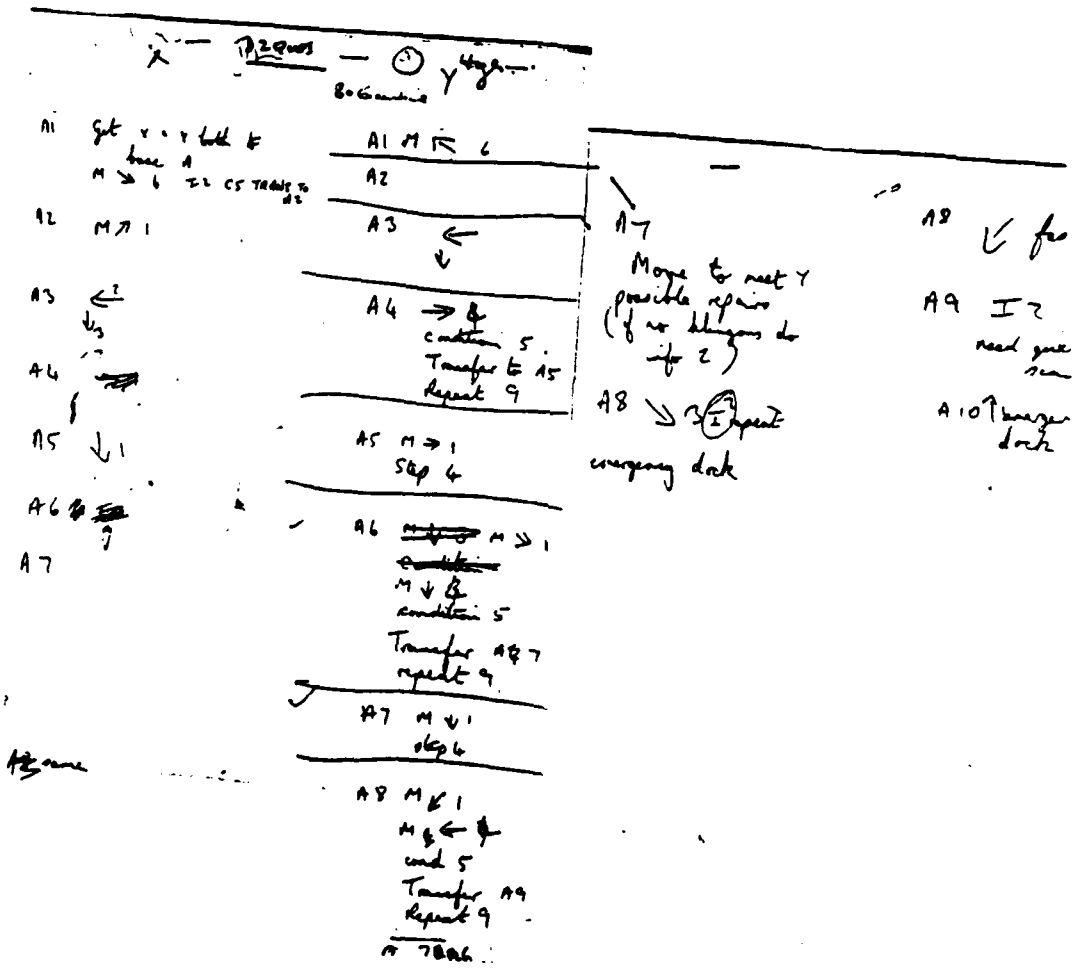 A1 Get x + y both to
base A
M ↘ 6 I2 C5 TRANS TO
A2
A2 M ↗ 1
A3 ←
↓ 3
A4
A5 ↓ 1
A6
A7
same
A1 M ↖ 6
A2
A3 ←
↓
A4 →
condition 5
Transfer to A5
Repeat 9
A5 M → 1
Skip 4
A6 M ↘ 1
M ↓
condition 5
Transfer 7
repeat 9
A7 M ↓ 1
skip 4
A8 M ↙ 1
M ←
cond 5
Transfer A9
Repeat 9
A7
Move to meet Y
possible repairs
(if no klingons do
info 2)
A8 ↘ 3 I repeat
emergency dock
A8 ↙
A9 I 2
need
A10 ↑
dock